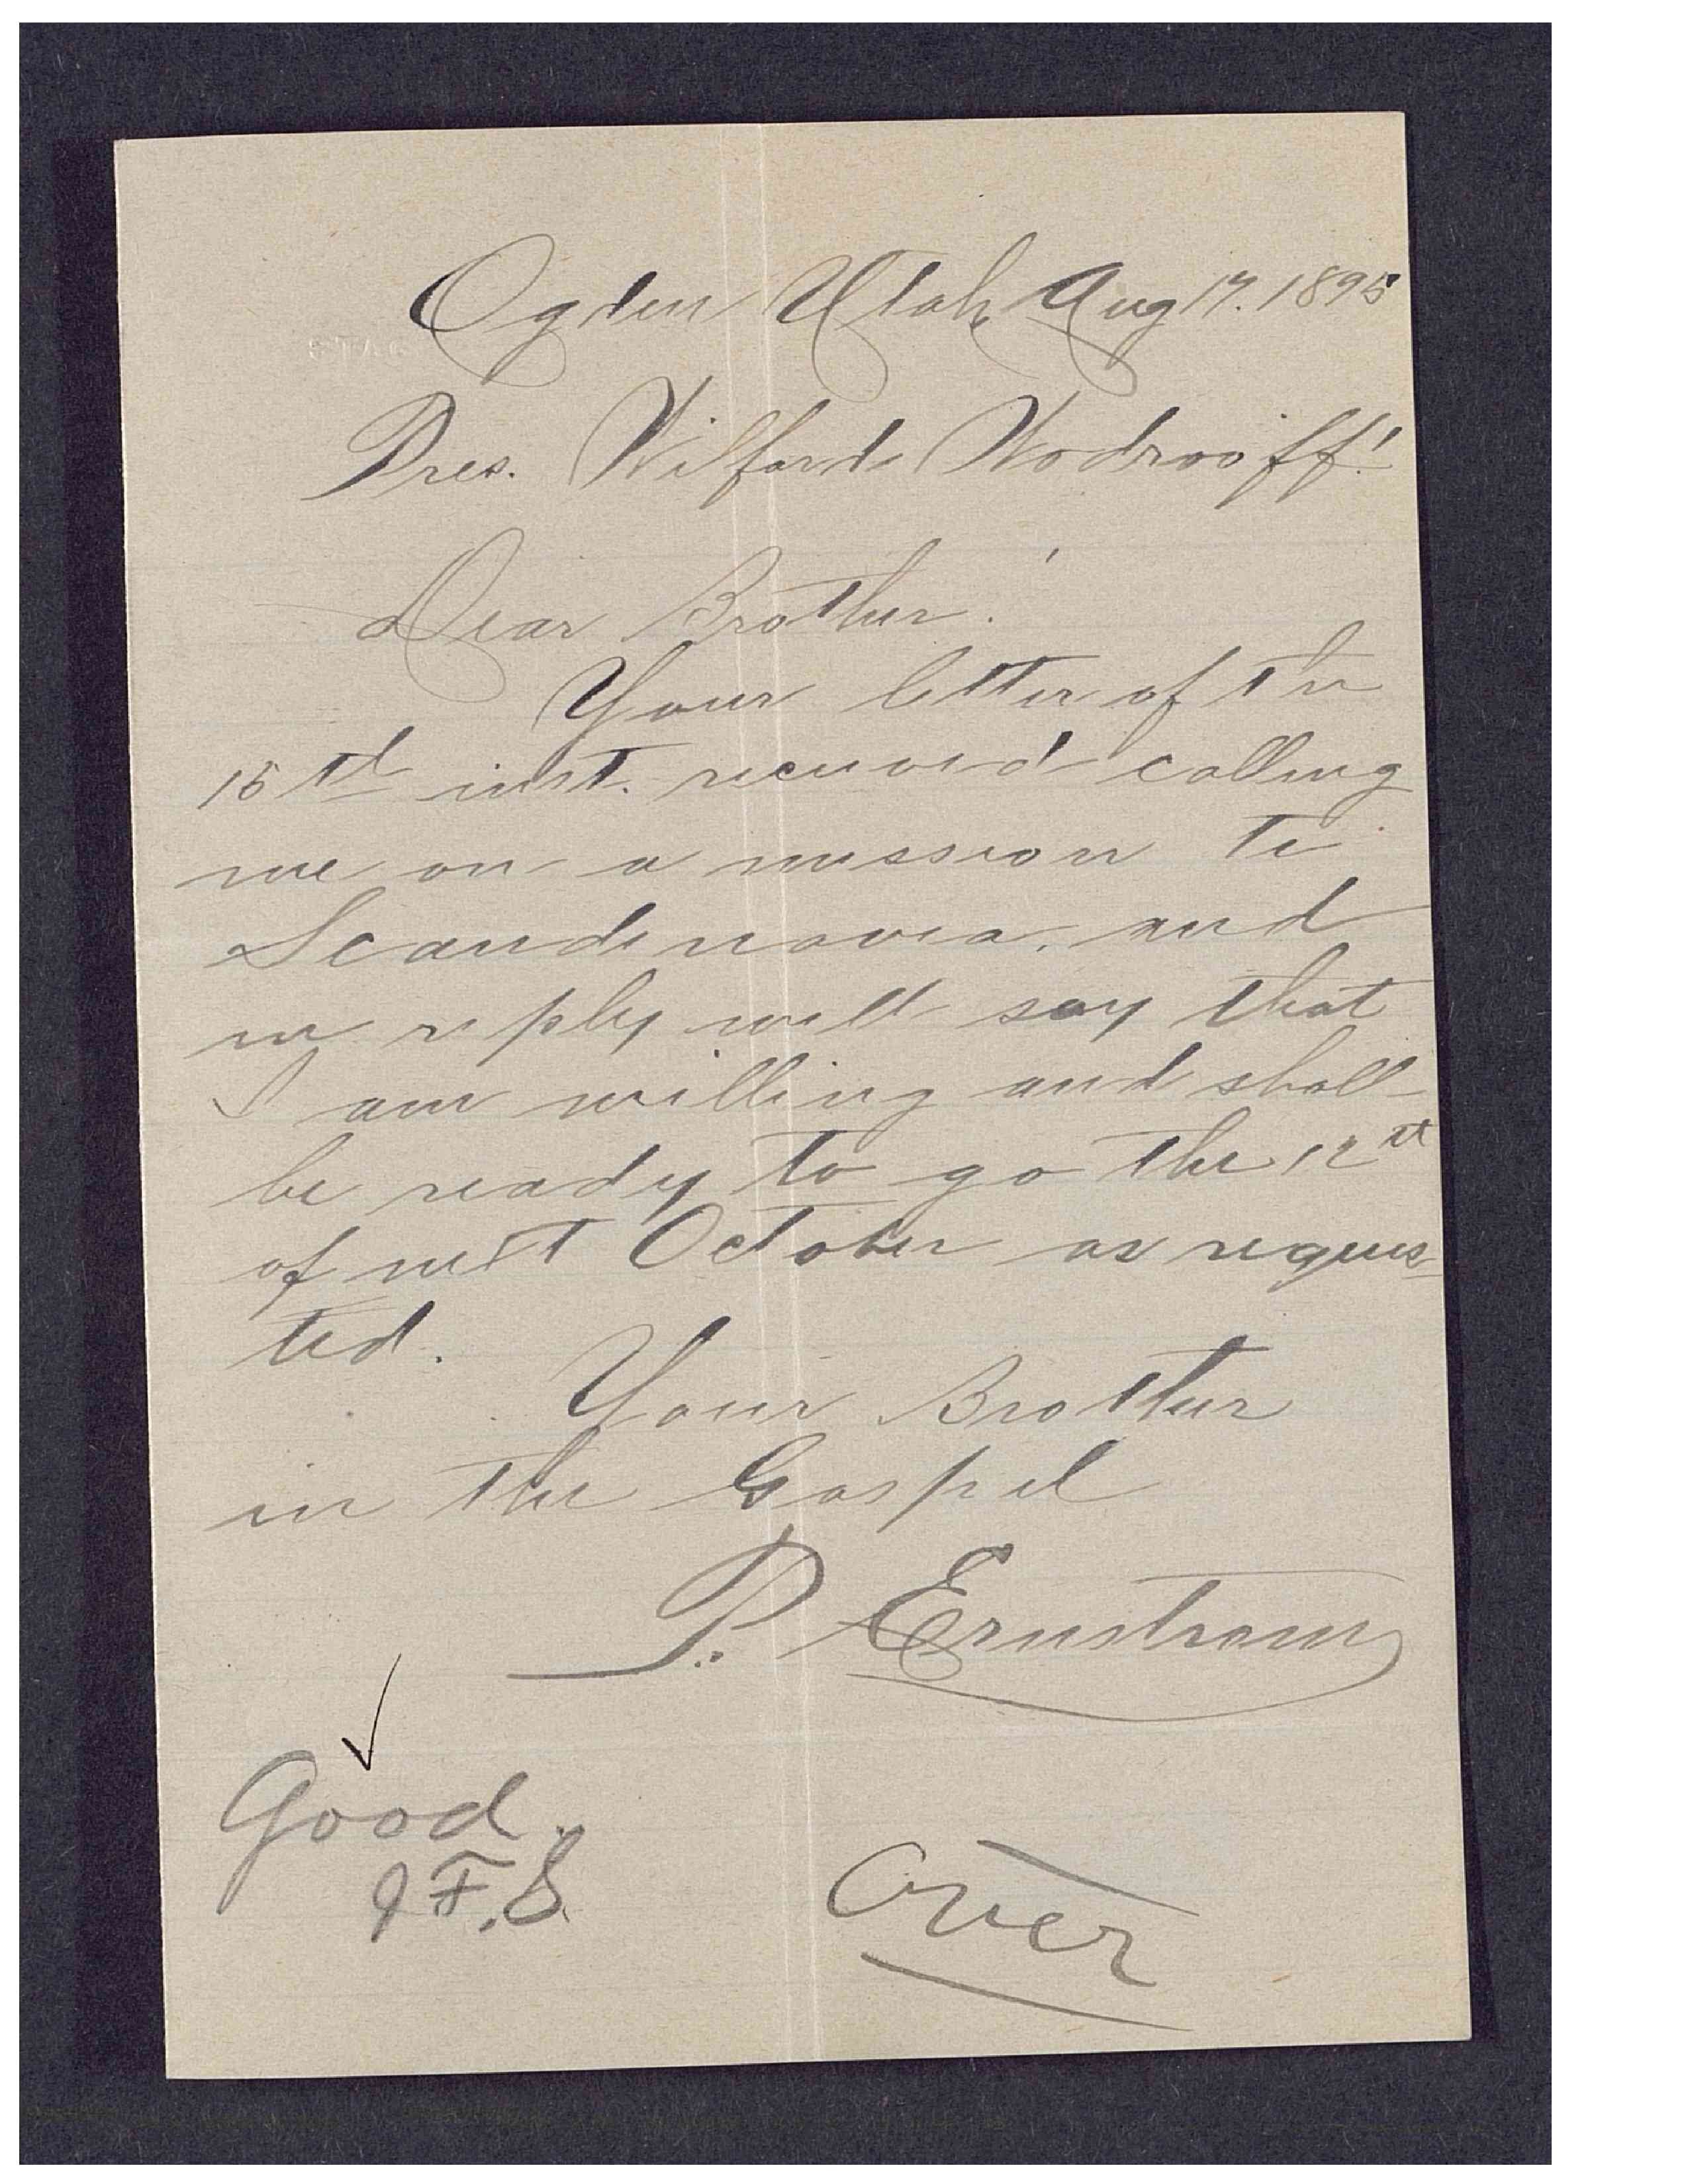 Ogden Utah, Aug 17. 1895
Pres. Wilford Wodrooff!
Dear Brother!
Your letter of the
15th inst. received calling
me on a mission to
Scandinavia, and
in reply will say that
I am willing and shall
be ready to go the 12th
of next October as reques-
ted.
Your Brother
in the Gospel
P. Ernstrom
Good.
J F. S.
Over